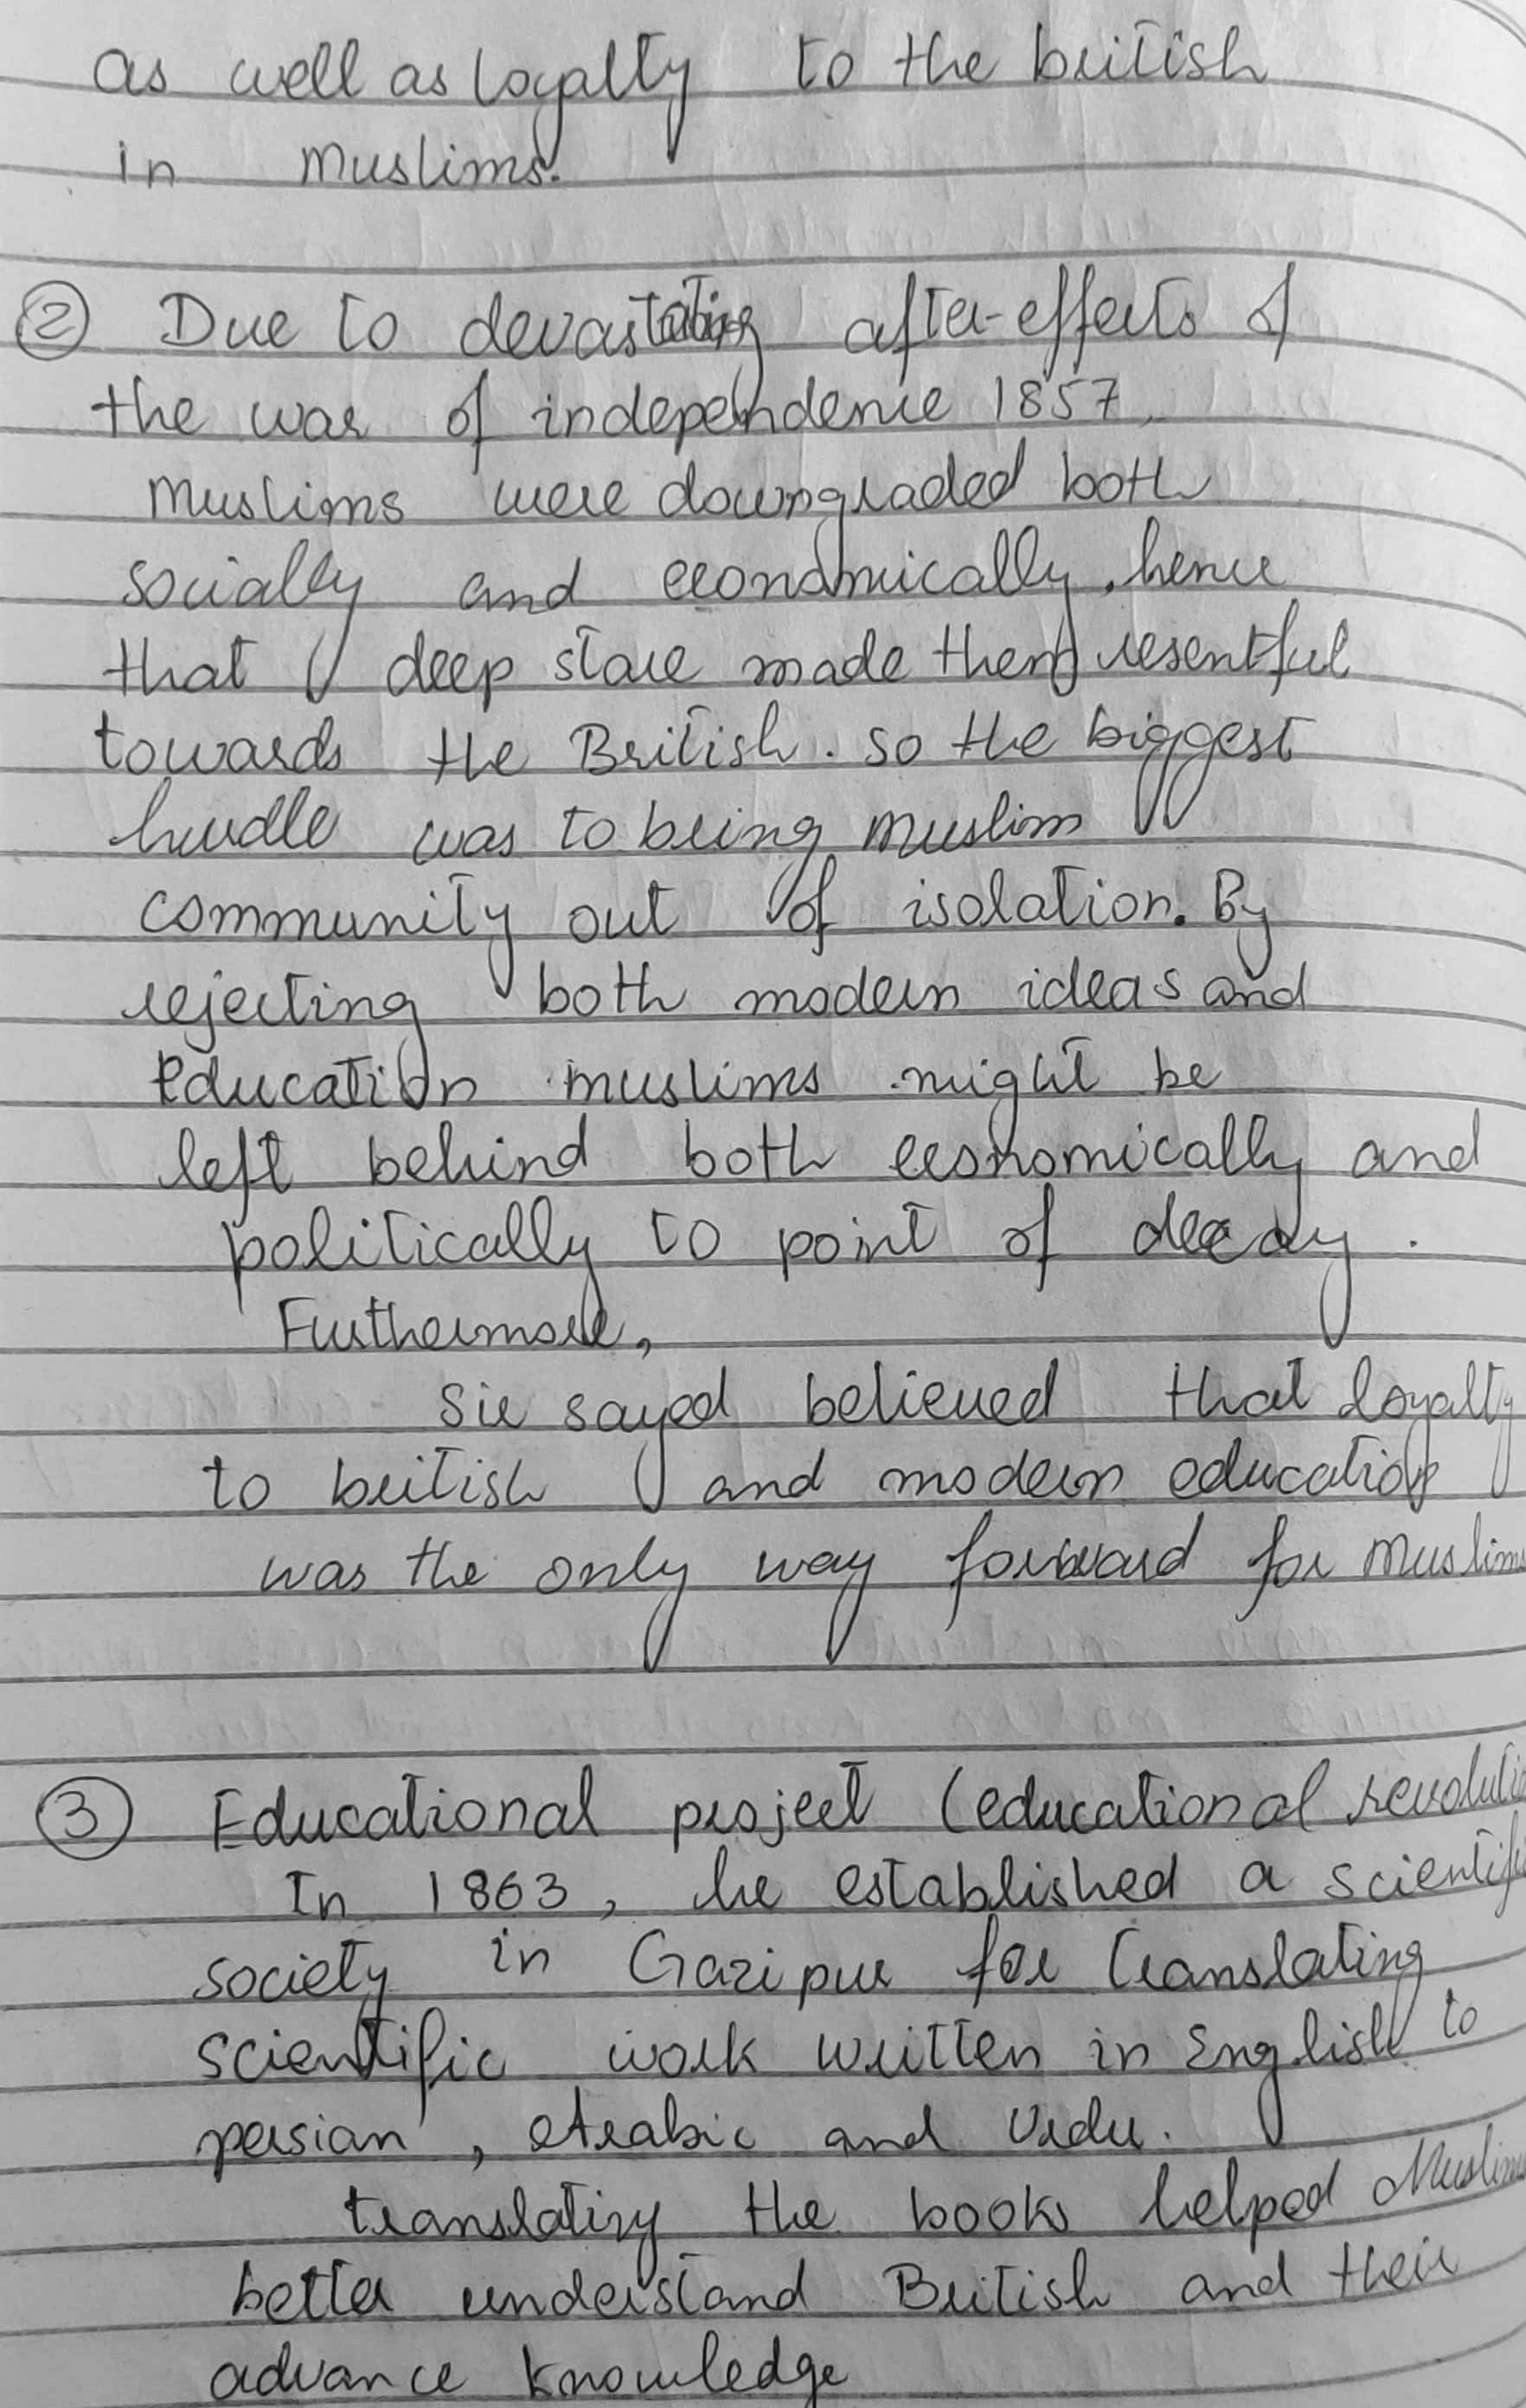 as well as loyalty to the british
in Muslims.
② Due to devastating after-effects of
the war of independence 1857,
Muslims were downgraded both
socially and economically, hence
that deep stare made them resentful
towards the British. so the biggest
hurdle was to bring muslim
community out of isolation. By
rejecting both modern ideas and
Education muslims might be
left behind both economically and
politically to point of decay.
Furthermore,
Sir sayed believed that loyalty
to british and modern education
was the only way forward for Muslims
③ Educational project (educational revolutio
In 1863, he established a scientifi
society in Gazipur for translating
scientific work written in English to
persian, Arabic and Urdu.
translating the books helped Muslims
better understand British and their
advance knowledge